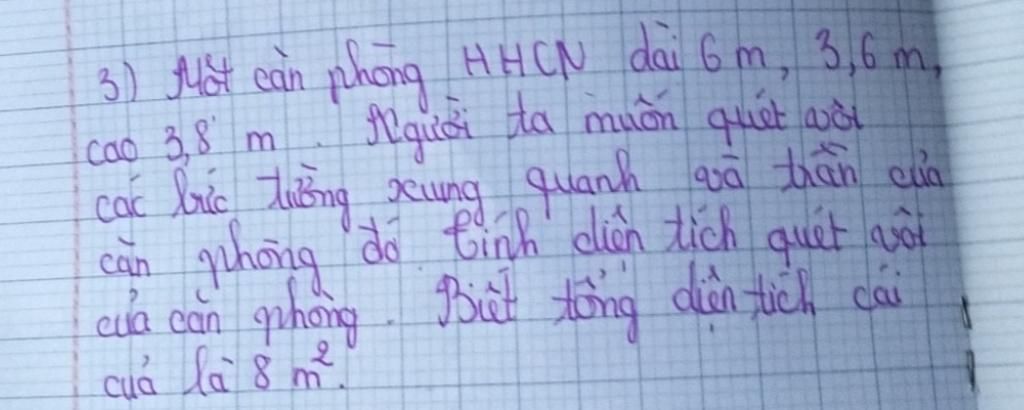 3) Một căn phòng HHCN dài 6 m, 3,6 m,
cao 3,8 m. Người ta muốn quét vôi
các bức tường xung quanh và trần của
căn phòng đó. Tính diện tích quét vôi
của căn phòng. Biết tổng diện tích các
cửa là 8 m².